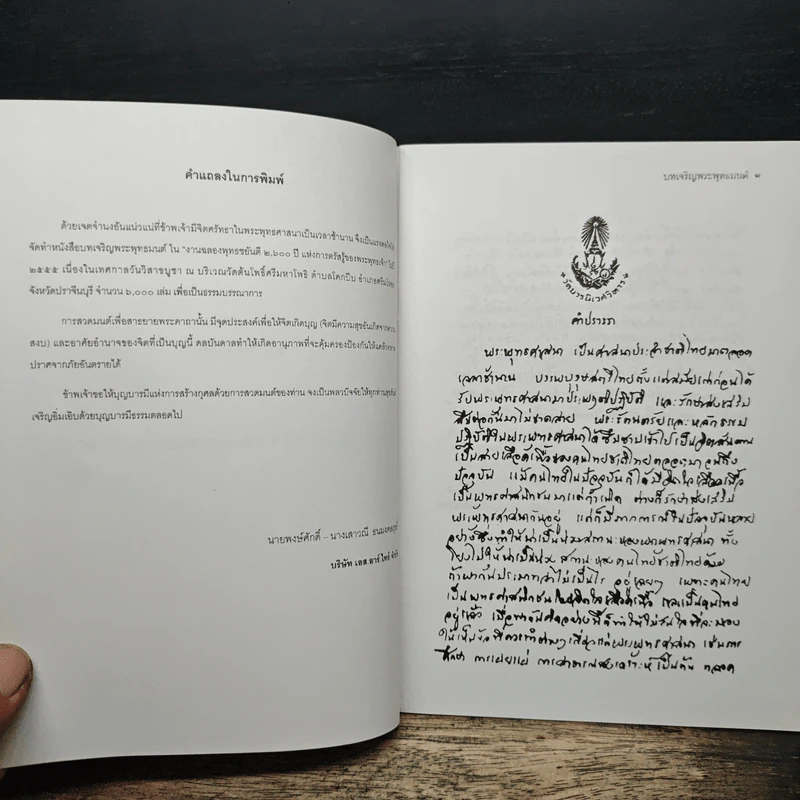 คำแถลงในการพิมพ์
ด้วยเจตจำนงอันแน่วแน่ที่ข้าพเจ้ามีจิตศรัทธาในพระพุทธศาสนาเป็นเวลาช้านาน จึงเป็นแรงดลใจให้
จัดทำหนังสือบทเจริญพระพุทธมนต์ ใน "งานฉลองพุทธชยันตี ๒,๖๐๐ ปี แห่งการตรัสรู้ของพระพุทธเจ้า" ในปี
๒๕๕๕ เนื่องในเทศกาลวันวิสาขบูชา ณ บริเวณวัดต้นโพธิ์ศรีมหาโพธิ ตำบลโคกปีบ อำเภอศรีมโหสถ
จังหวัดปราจีนบุรี จำนวน ๖,๐๐๐ เล่ม เพื่อเป็นธรรมบรรณาการ
การสวดมนต์เพื่อสาธยายพระคาถานั้น มีจุดประสงค์เพื่อให้จิตเกิดบุญ (จิตมีความสุขอันเกิดจากความ
สงบ) และอาศัยอำนาจของจิตที่เป็นบุญนี้ ดลบันดาลทำให้เกิดอานุภาพที่จะคุ้มครองป้องกันให้แคล้วคลาด
ปราศจากภัยอันตรายได้
ข้าพเจ้าขอให้บุญบารมีแห่งการสร้างกุศลด้วยการสวดมนต์ของท่าน จงเป็นพลวปัจจัยให้ทุกท่าน
เจริญอิ่มเอิบด้วยบุญบารมีธรรมตลอดไป
นายพงษ์ศักดิ์ – นางเสาวณี
บริษัท เอส อาร์
บทเจริญพระพุทธมนต์ ๑
วัดบวรนิเวศวิหาร
คำปรารภ
พระพุทธศาสนา เป็นศาสนาประจำชาติไทยมาตลอด
เวลาช้านาน บรรพบุรุษสตรีไทยตั้งแต่สมัยเก่าก่อนได้
รับพระพุทธศาสนามาประพฤติปฏิบัติ และรักษาส่งเสริม
สืบต่อกันมาไม่ขาดสาย พระรัตนตรัยและหลักธรรม
ปฏิบัติในพระพุทธศาสนาได้ซึมซาบเข้าไปเป็นจิตสันดาน
เป็นสายเลือดเนื้อของคนไทยชาติไทยตลอดมาจนถึง
ปัจจุบัน แม้คนไทยในปัจจุบันก็ได้มีจิตใจเลือดเนื้อ
เป็นพุทธศาสนิกชนมาแต่กำเนิด ต่างก็รักษาส่งเสริม
พระพุทธศาสนากันอยู่ แต่ก็มีเหตุการณ์ในปัจจุบันหลาย
อย่างซึ่งทำให้น่าเป็นห่วงสถานะของพระพุทธศาสนา ทั้ง
โยงไปให้น่าเป็นห่วงสถานะของคนไทยชาติไทยด้วย
ถ้าพากันประมาทว่าไม่เป็นไร อยู่เฉยๆ เพราะคนไทย
เป็นพุทธศาสนิกชนโดยจิตใจเลือดเนื้อ และเป็นคนไทย
อยู่แล้ว เมื่อพากันคิดอย่างนี้ก็ทำให้ไม่สนใจที่จะมอง
ให้เห็นข้อที่ควรทำต่างๆ เกี่ยวแก่พระพุทธศาสนา เช่นการ
ศึกษา การเผยแผ่ การสาธารณสงเคราะห์ เป็นต้น ตลอด